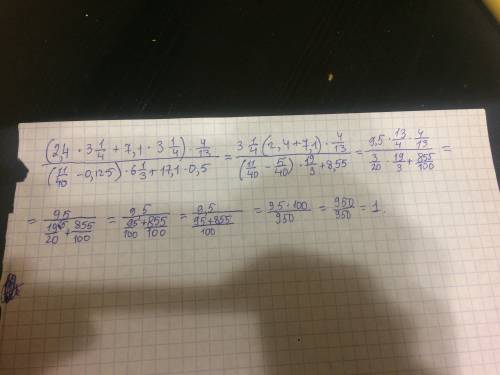 (2,4 · 3 1/4 + 7,1 · 3 1/4) · 4/13 / ((11/40 - 0,125) · 6 1/3 + 17,1 · 0,5) = 3 1/4 (2,4 + 7,1) · 4/13 / ((11/40 - 5/40) · 19/3 + 8,55) = 9,5 · 13/4 · 4/13 / (3/20 · 19/3 + 855/100) =
= 9,5 / (19/20 + 855/100) = 9,5 / (95/100 + 855/100) = 9,5 / ((95 + 855)/100) = 9,5 · 100 / 950 = 950/950 = 1.